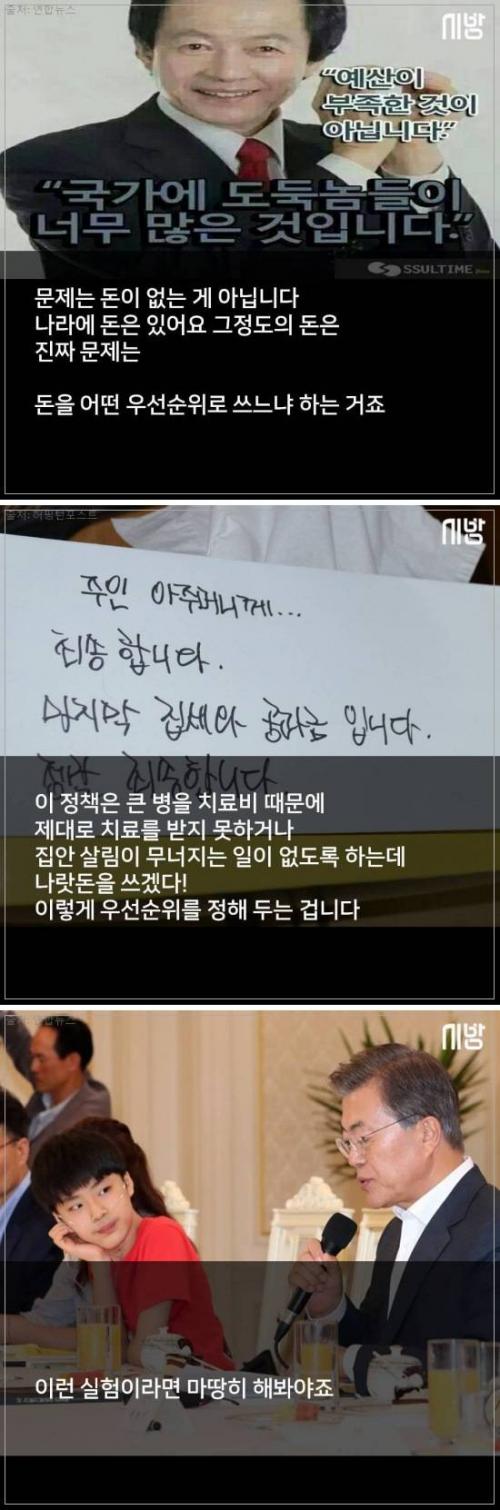 출처: 연합뉴스
시방
“예산이
부족한 것이
아닙니다.”
“국가에 도둑놈들이
너무 많은 것입니다.”
SSULTIME
문제는 돈이 없는 게 아닙니다
나라에 돈은 있어요 그정도의 돈은
진짜 문제는
돈을 어떤 우선순위로 쓰느냐 하는 거죠
출처: 허핑턴포스트
시방
주인 아주머니께...
죄송합니다.
마지막 집세와 공과금 입니다.
정말 죄송합니다.
이 정책은 큰 병을 치료비 때문에
제대로 치료를 받지 못하거나
집안 살림이 무너지는 일이 없도록 하는데
나랏돈을 쓰겠다!
이렇게 우선순위를 정해 두는 겁니다
출처: 연합뉴스
시방
이런 실험이라면 마땅히 해봐야죠